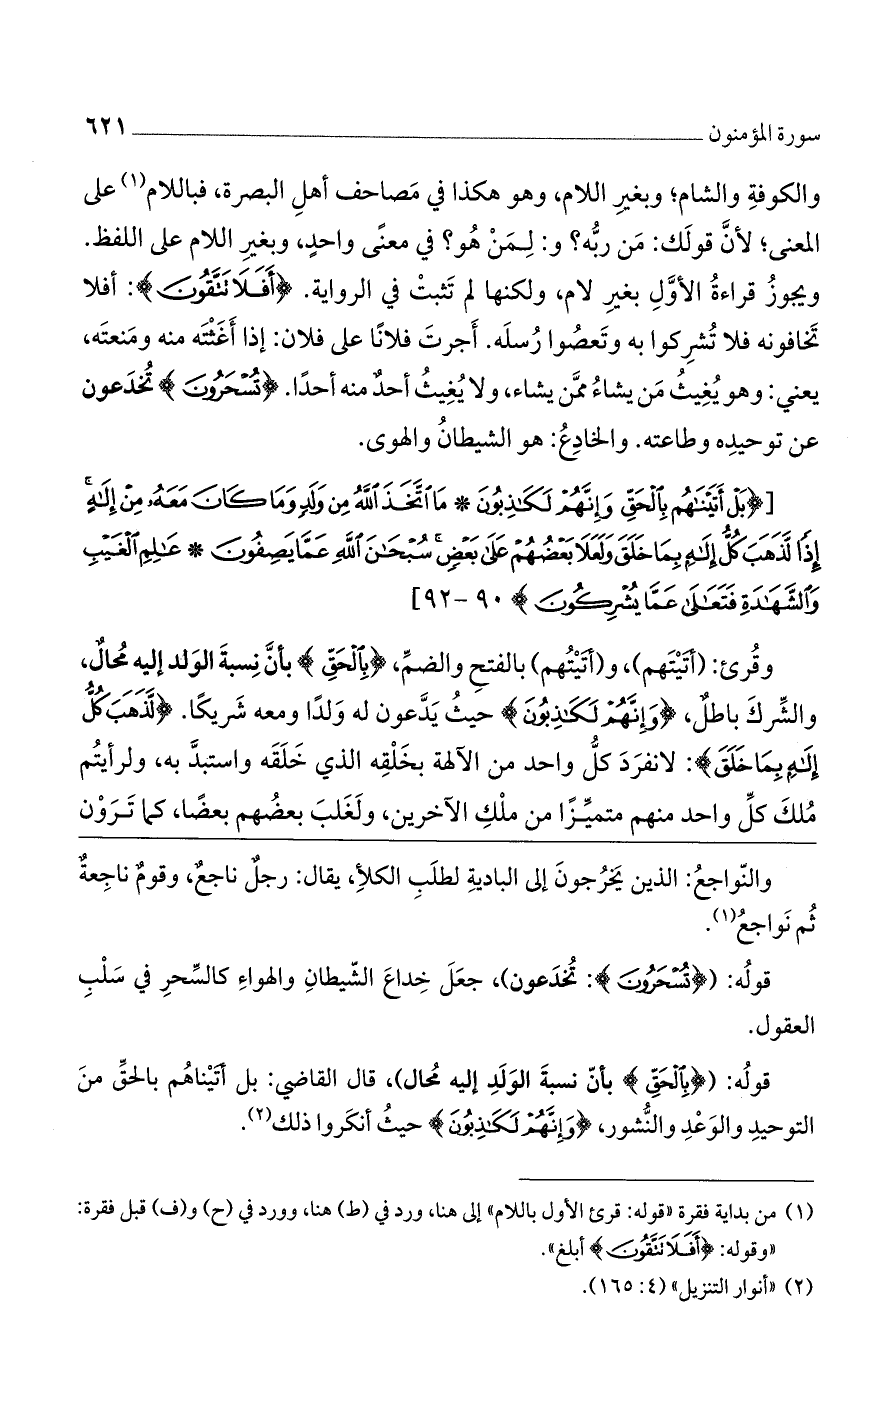 سورة المؤمنون ٦٢١
والكوفةِ والشام؛ وبغيرِ اللام، وهو هكذا في مَصاحف أهلِ البصرة، فباللام(١) على
المعنى؛ لأنَّ قولَك: مَن ربُّه؟ و: لِـمَنْ هُو؟ في معنًى واحدٍ، وبغيرِ اللام على اللفظ.
ويجوزُ قراءةُ الأوَّلِ بغيرِ لام، ولكنها لم تَثبتْ في الرواية. ﴿أَفَلَا تَتَّقُونَ﴾: أفلا
تَخافونه فلا تُشرِكوا به وتَعصُوا رُسلَه. أَجرتَ فلانًا على فلان: إذا أَغَثْتَه منه ومَنعتَه،
يعني: وهو يُغِيثُ مَن يشاءُ ممَّن يشاء، ولا يُغِيثُ أحدٌ منه أحدًا. ﴿تُسْحَرُونَ﴾ تُخدَعون
عن توحيدِه وطاعته. والخادِعُ: هو الشيطانُ والهوى.
[﴿بَلْ أَتَيْنَٰهُم بِٱلْحَقِّ وَإِنَّهُمْ لَكَٰذِبُونَ * مَا ٱتَّخَذَ ٱللَّهُ مِن وَلَدٍ وَمَا كَانَ مَعَهُۥ مِنْ إِلَٰهٍ ۚ
إِذًا لَّذَهَبَ كُلُّ إِلَٰهٍۭ بِمَا خَلَقَ وَلَعَلَا بَعْضُهُمْ عَلَىٰ بَعْضٍ ۚ سُبْحَٰنَ ٱللَّهِ عَمَّا يَصِفُونَ * عَٰلِمِ ٱلْغَيْبِ
وَٱلشَّهَٰدَةِ فَتَعَٰلَىٰ عَمَّا يُشْرِكُونَ﴾ ٩٠ - ٩٢]
وقُرئ: (أتَيْتَهم)، و(أتَيْتُهم) بالفتحِ والضمِّ، ﴿بِٱلْحَقِّ﴾ بأنَّ نِسبةَ الوَلد إليه مُحالٌ،
والشِّركَ باطلٌ، ﴿وَإِنَّهُمْ لَكَٰذِبُونَ﴾ حيثُ يَدَّعون له وَلدًا ومعه شَريكًا. ﴿لَّذَهَبَ كُلُّ
إِلَٰهٍۭ بِمَا خَلَقَ﴾: لانفرَدَ كلُّ واحد من الآلهة بخَلْقِه الذي خَلَقَه واستبدَّ به، ولرأيتُم
مُلكَ كلِّ واحد منهم متميِّـزًا من ملْكِ الآخرين، ولَغَلبَ بعضُهم بعضًا، كما تَـرَوْن
والنّواجعُ: الذين يَخرُجونَ إلى الباديةِ لطلَبِ الكلأِ، يقال: رجلٌ ناجعٌ، وقومٌ ناجِعةٌ
ثُم نَواجعُ(١).
قولُه: (﴿تُسْحَرُونَ﴾: تُخدَعون)، جعَلَ خِداعَ الشّيطانِ والهواءِ كالسِّحرِ في سَلْبِ
العقول.
قولُه: (﴿بِٱلْحَقِّ﴾ بأنّ نسبةَ الوَلَدِ إليه مُحال)، قال القاضي: بل أتَيْناهُم بالحقِّ منَ
التوحيدِ والوَعْدِ والنُّشور، ﴿وَإِنَّهُمْ لَكَٰذِبُونَ﴾ حيثُ أنكَروا ذلك(٢).
(١) من بداية فقرة «قوله: قرئ الأول باللام» إلى هنا، ورد في (ط) هنا، وورد في (ح) و(ف) قبل فقرة:
«وقوله: ﴿أَفَلَا تَتَّقُونَ﴾ أبلغ».
(٢) «أنوار التنزيل» (٤: ١٦٥).